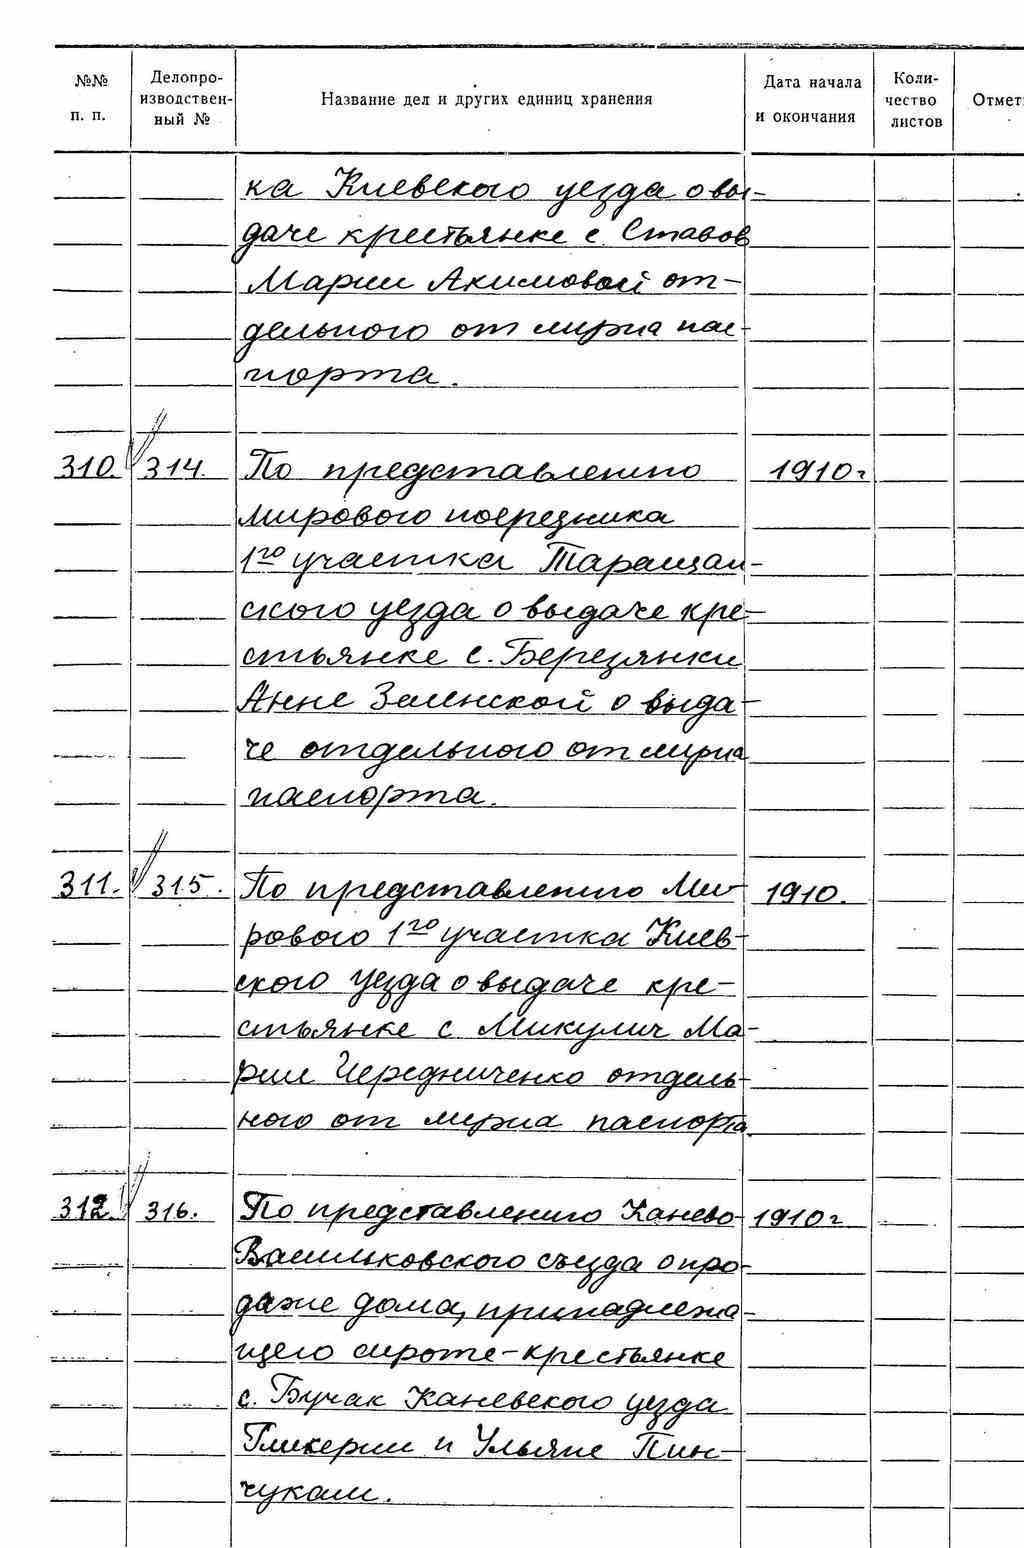 №№ п. п.
Делопро-
изводствен-
ный №
Название дел и других единиц хранения
Дата начала
и окончания
Коли-
чество
листов
Отмет
ка Киевского уезда о вы-
даче крестьянке с. Ставов
Марии Акимовой от-
дельного от мужа пас-
порта.
310. 314. По представлению 1910 г
мирового посредника
1го участка Таращан-
ского уезда о выдаче кре-
стьянке с. Березянки
Анне Зеленской о выда-
че отдельного от мужа
паспорта.
311. 315. По представлению Ми- 1910.
рового 1го участка Киев-
ского уезда о выдаче кре-
стьянке с Микулич Ма-
рии Чередниченко отдель-
ного от мужа паспорта.
312. 316. По представлению Канево- 1910 г
Васильковского съезда о про-
даже дома, принадлежа-
щего сироте-крестьянке
с. Бучак Каневского уезда
Гликерии и Ульяне Пин-
чукам.